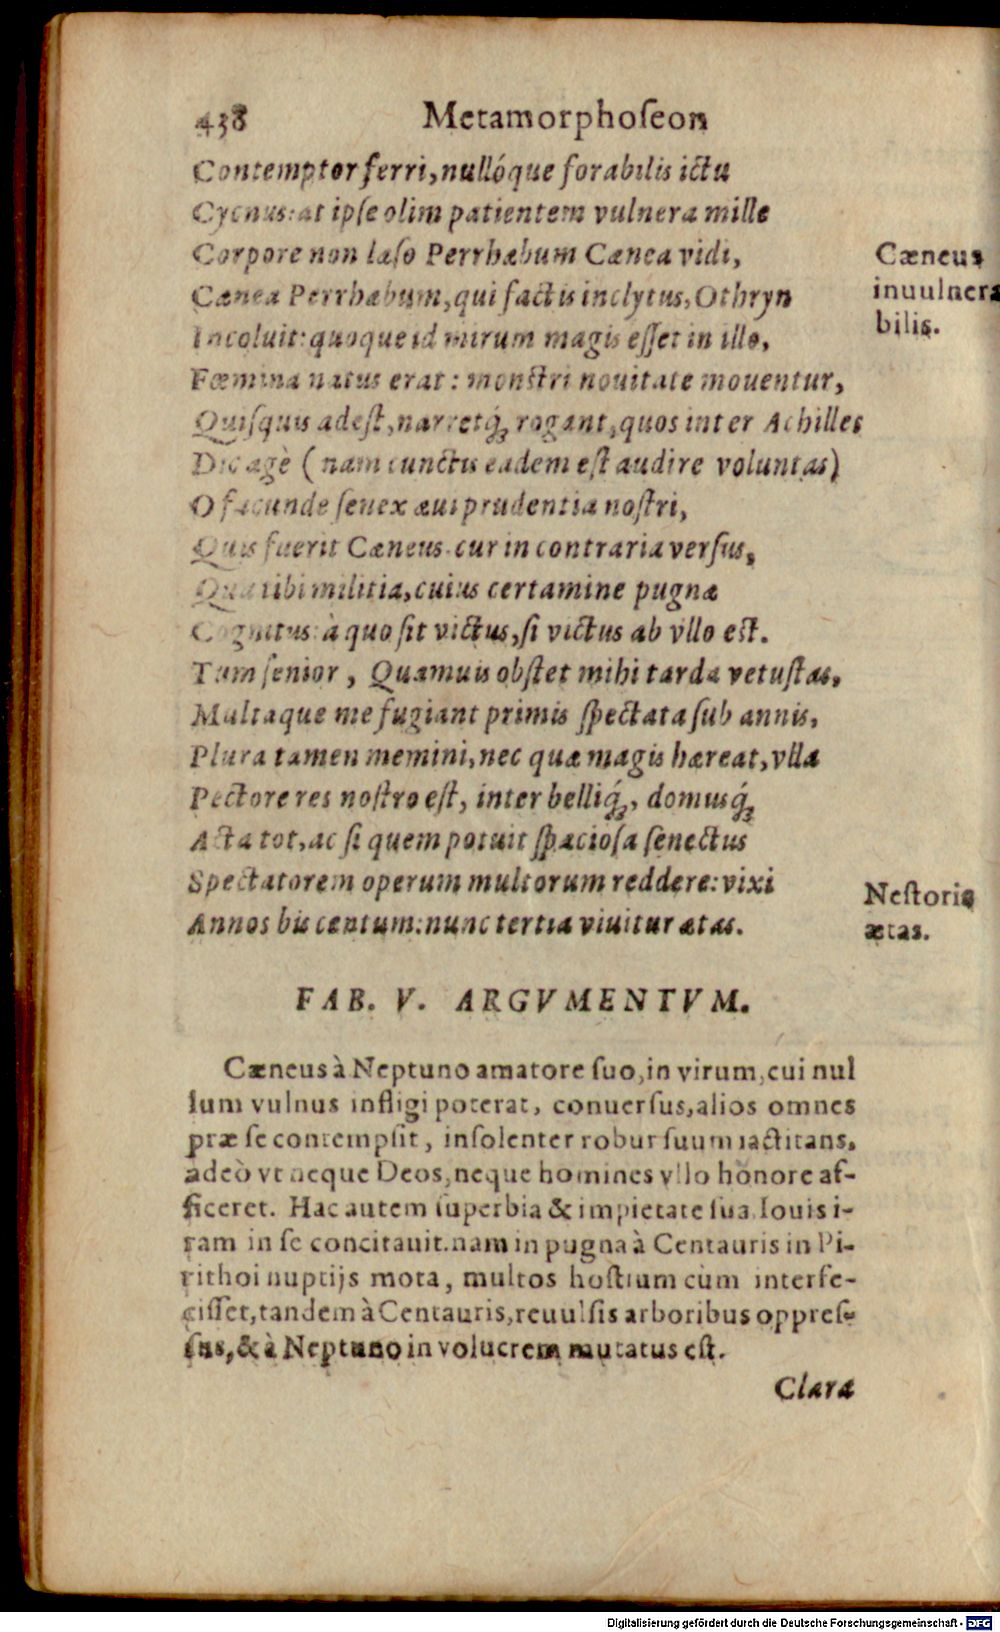 438 Metamorphoſeon
Contemptor ferri, nullóque forabilis ictu
Cycnus: at ipſe olim patientem vulnera mille
Corpore non læſo Perrhæbum Cænea vidi,
Cænea Perrhæbum, qui factis inclytus, Othryn
Incoluit: quoque id mirum magis eſſet in illo,
Fœmina natus erat: monſtri nouitate mouentur,
Quiſquis adeſt, narretq́; rogant, quos inter Achilles
Dic agè (nam cunctis eadem eſt audire voluntas)
O facunde ſenex æui prudentia noſtri,
Quis fuerit Cæneus. cur in contraria verſus,
Qua tibi militia, cuius certamine pugnæ
Cognitus: à quo ſit victus, ſi victus ab vllo eſt.
Tum ſenior, Quamuis obſtet mihi tarda vetuſtas,
Multaque me fugiant primis ſpectata ſub annis,
Plura tamen memini, nec quæ magis hæreat, vlla
Pectore res noſtro eſt, inter belliq́;, domusq́;
Acta tot, ac ſi quem potuit ſpacioſa ſenectus
Spectatorem operum multorum reddere: vixi
Annos bis centum: nunc tertia viuitur ætas.
Cæneus
inuulnera
bilis.
Neſtoris
ætas.
FAB. V. ARGVMENTVM.
Cæneus à Neptuno amatore ſuo, in virum, cui nul
lum vulnus infligi poterat, conuerſus, alios omnes
præ ſe contempſit, inſolenter robur ſuum iactitans,
adeò vt neque Deos, neque homines vllo honore af-
ficeret. Hac autem ſuperbia & impietate ſua Iouis i-
ram in ſe concitauit. nam in pugna à Centauris in Pi-
rithoi nuptijs mota, multos hoſtium cùm interfe-
ciſſet, tandem à Centauris, reuulſis arboribus oppreſ-
ſus, & à Neptuno in volucrem mutatus eſt.
Clara
Digitalisierung gefördert durch die Deutsche Forschungsgemeinschaft - DFG